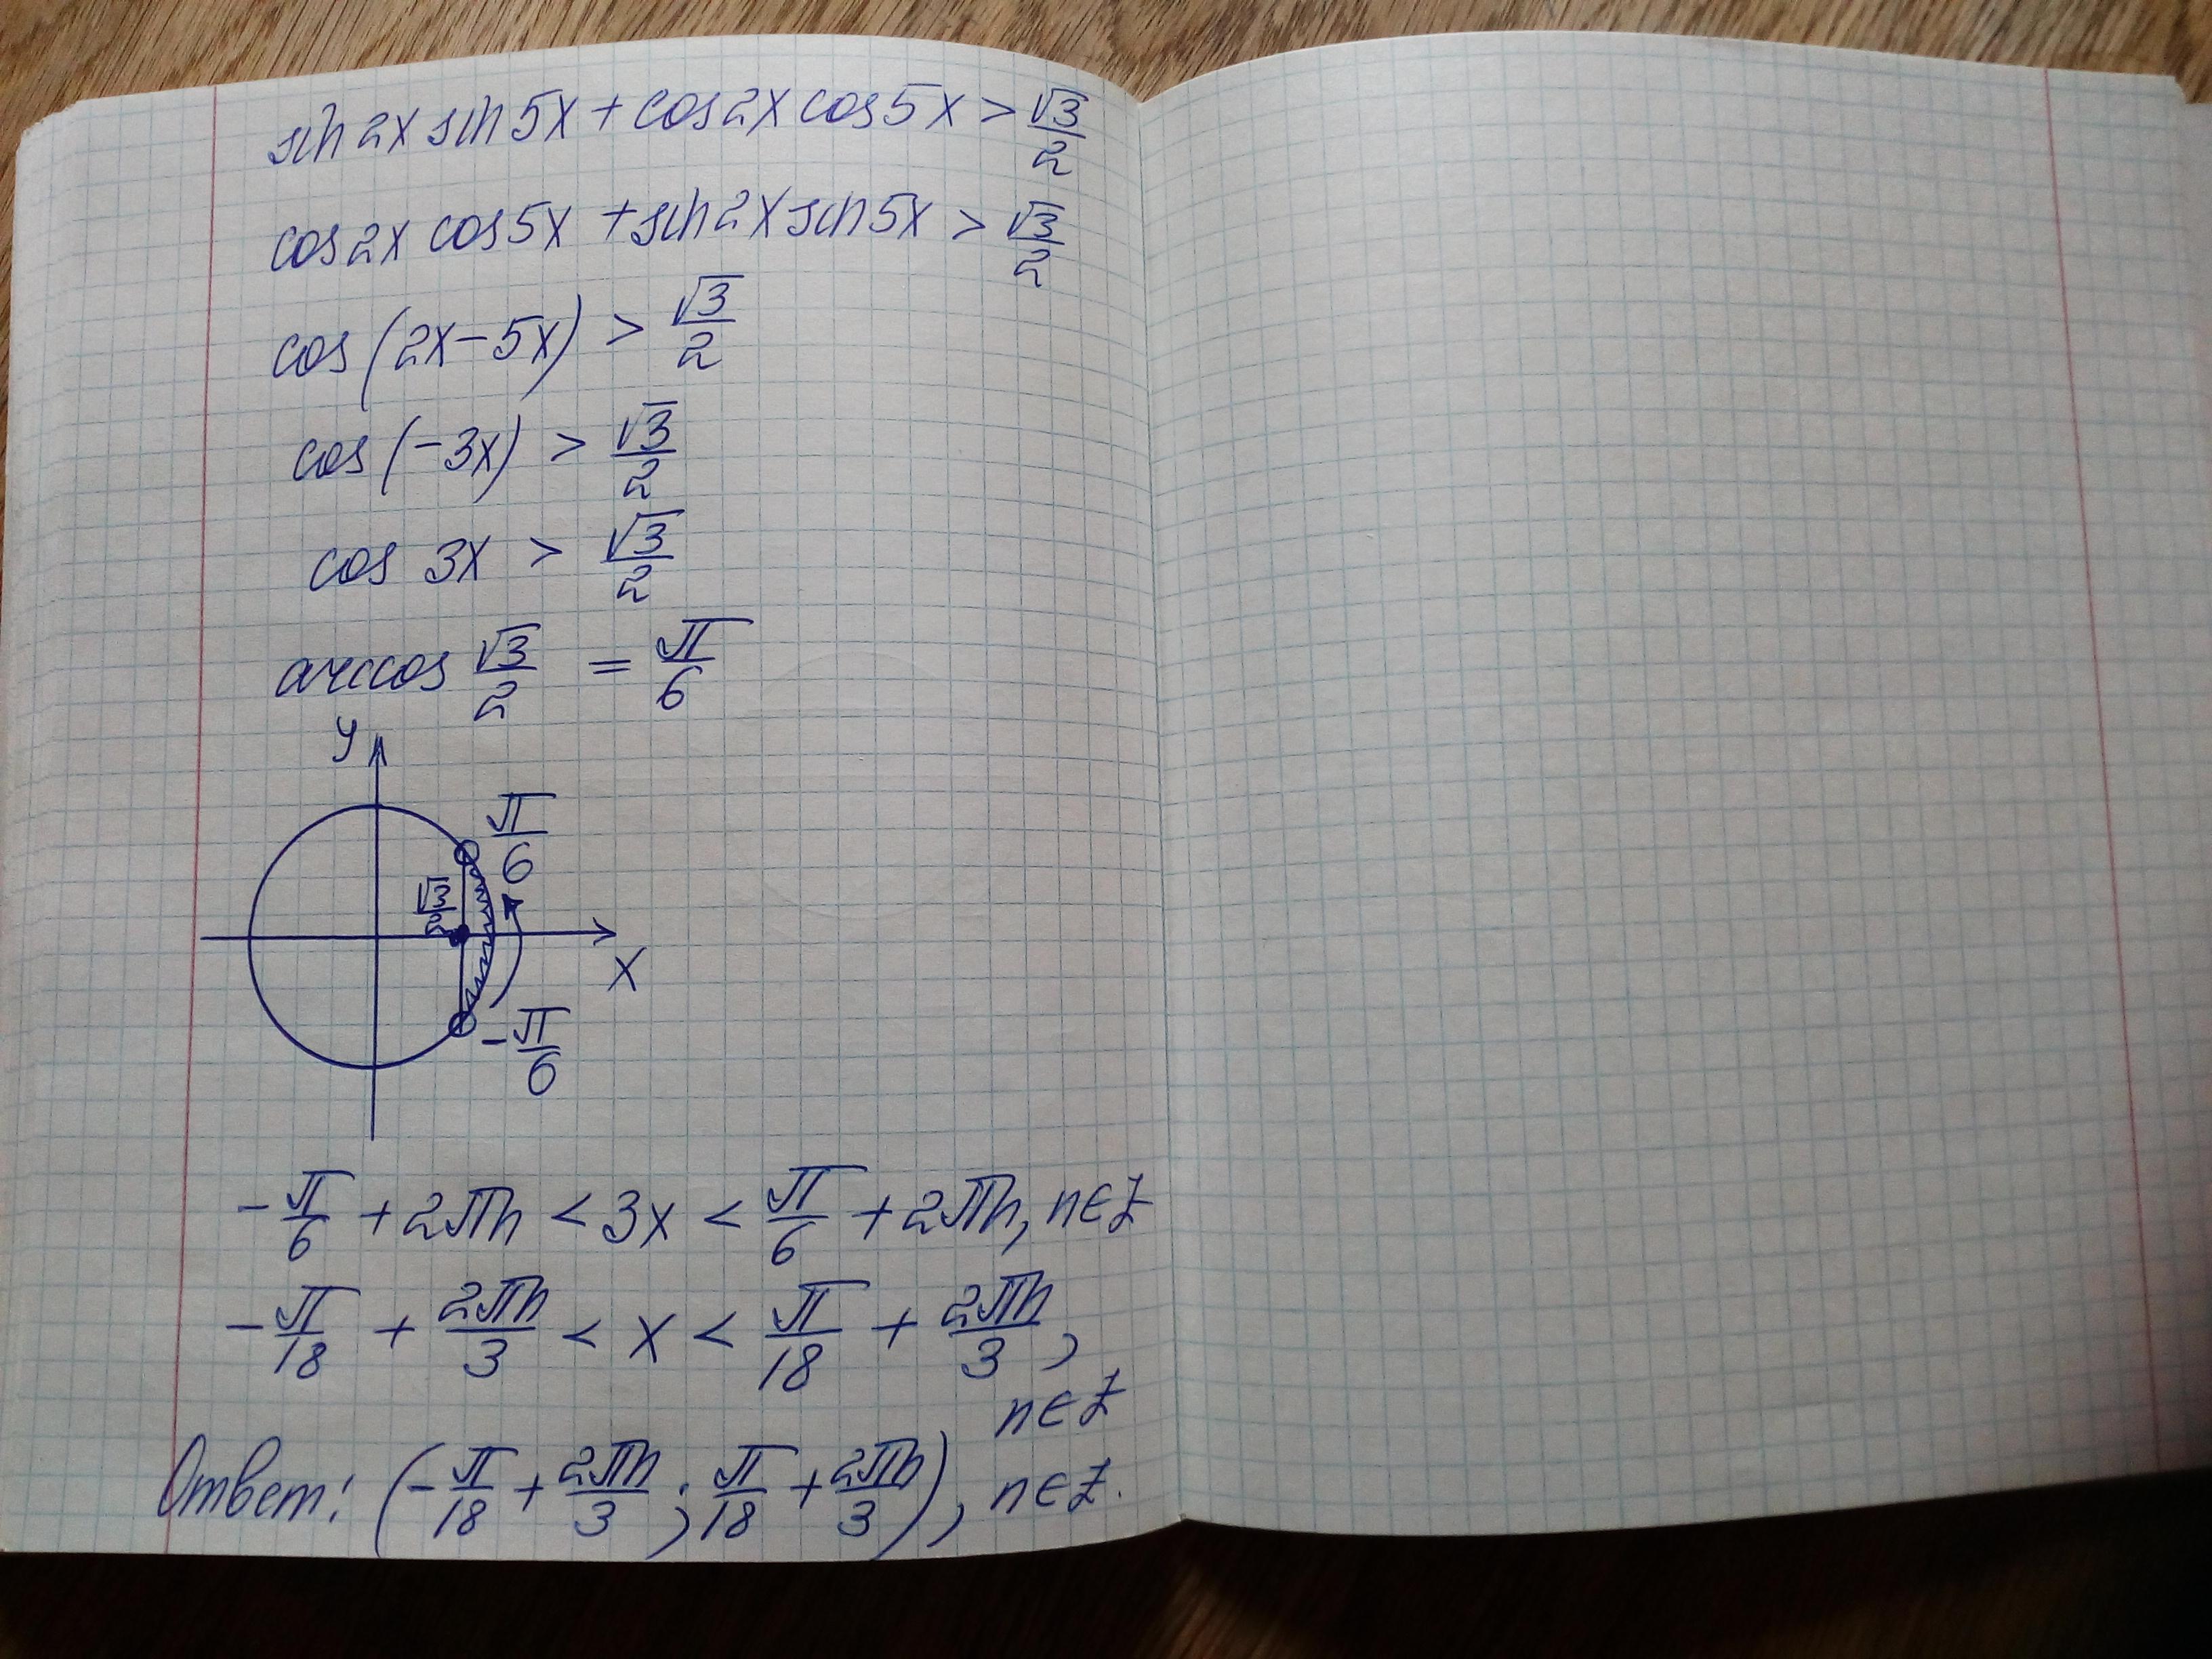 sin 2x sin 5x + cos 2x cos 5x > √3/2
cos 2x cos 5x + sin 2x sin 5x > √3/2
cos (2x - 5x) > √3/2
cos (-3x) > √3/2
cos 3x > √3/2
arccos √3/2 = π/6
y
π/6
√3/2
x
-π/6
-π/6 + 2πn < 3x < π/6 + 2πn, n∈Z
-π/18 + 2πn/3 < x < π/18 + 2πn/3,
n∈Z
Ответ: (-π/18 + 2πn/3; π/18 + 2πn/3), n∈Z.